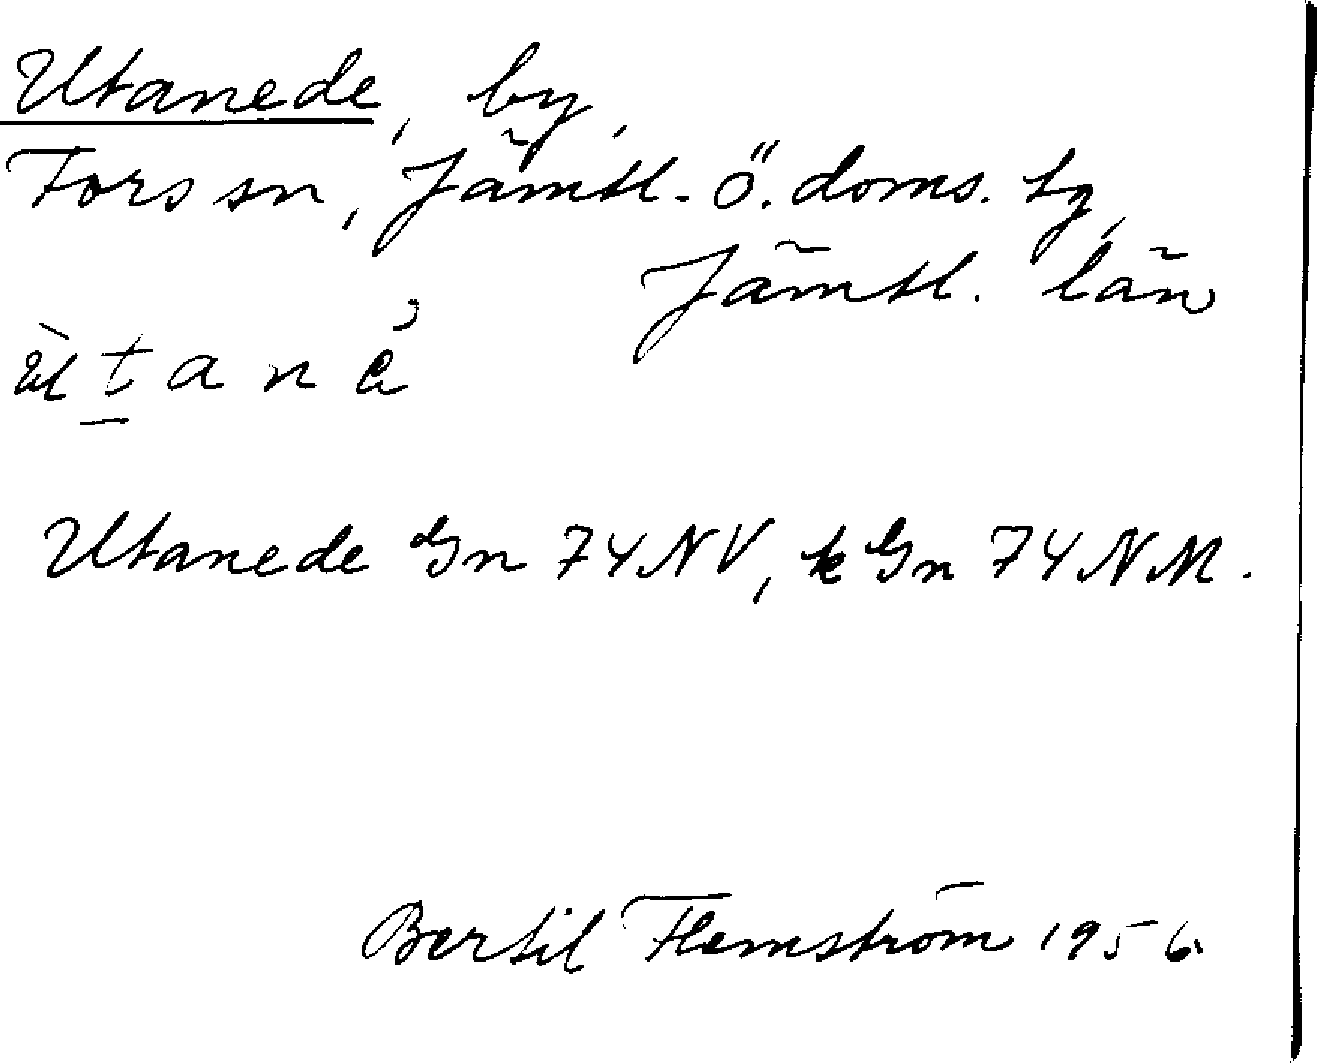 Utanede, by,
Fors sn, Jämtl. ö. doms. tg,
Jämtl. län
Utanede Gn 74 NV, k Gn 74 NM.
Bertil Flemström 1956.